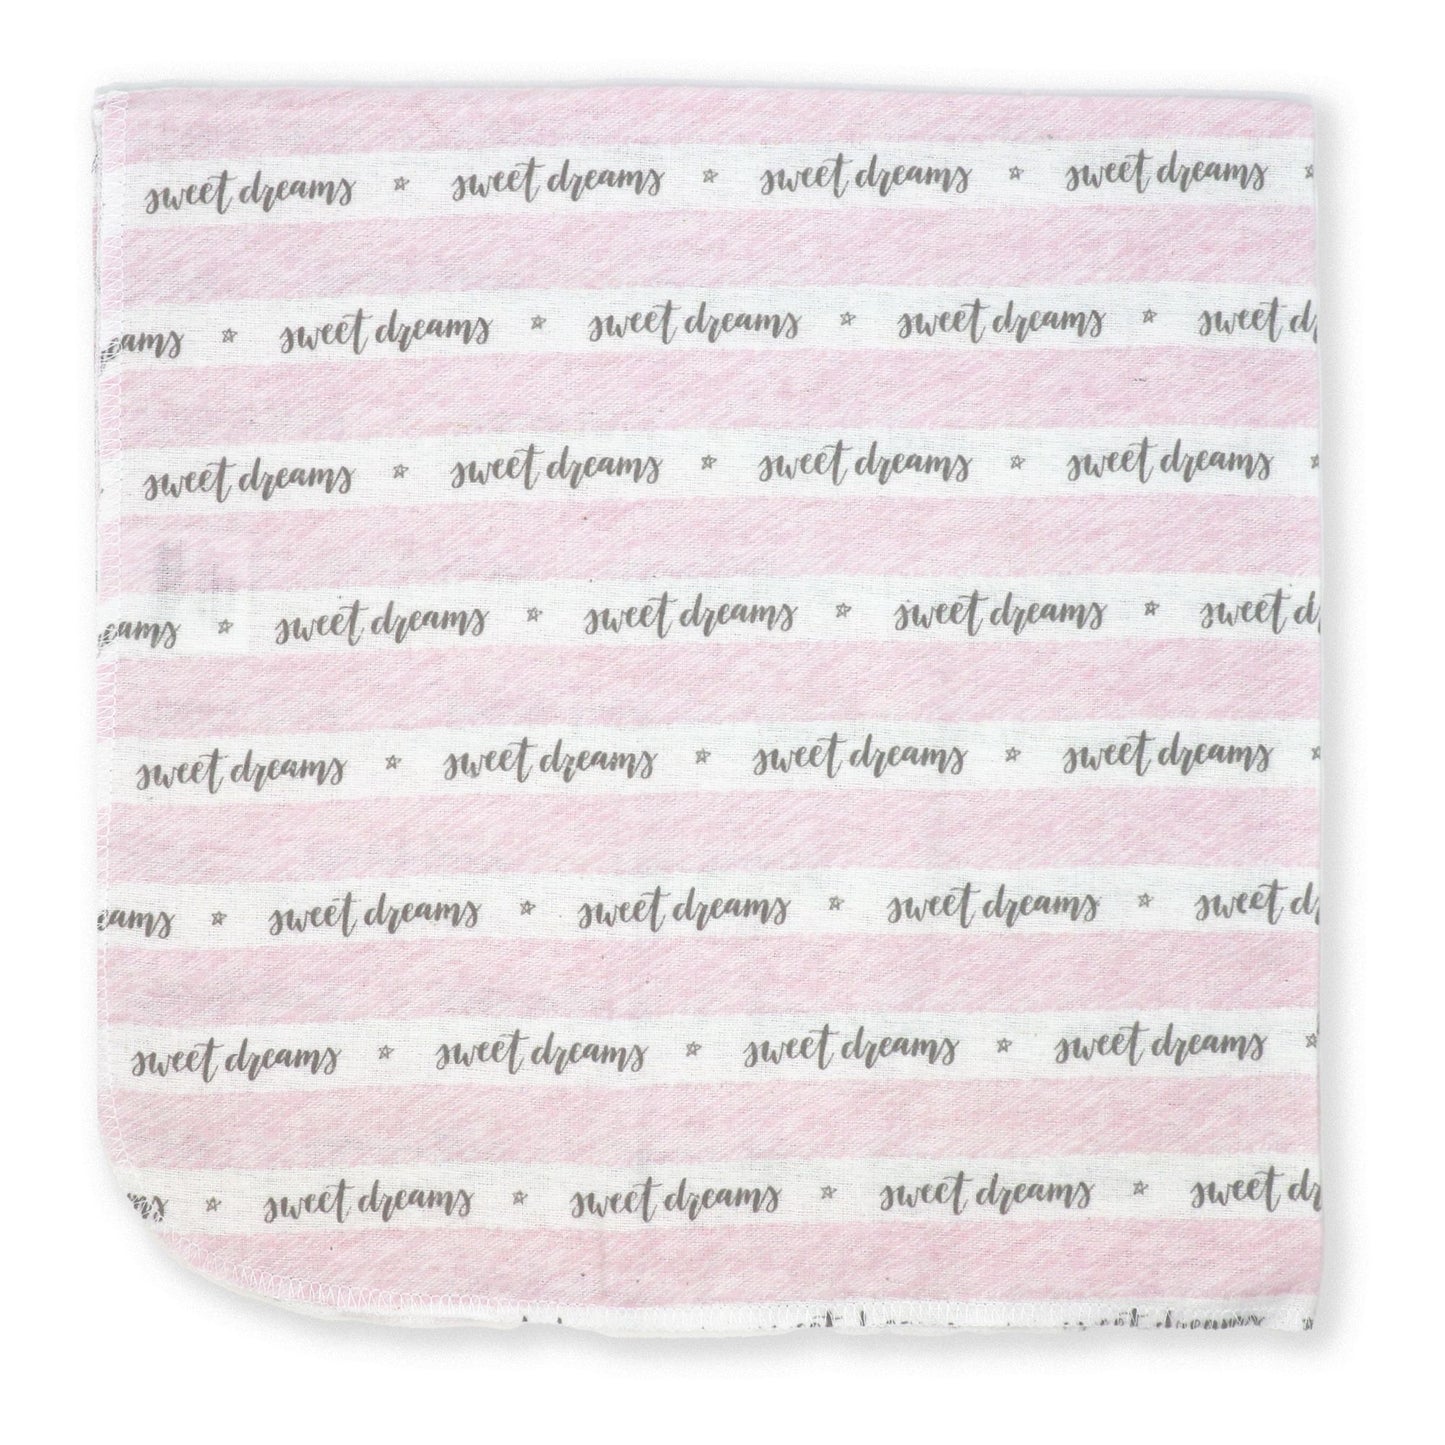 sweet dreams ☆ sweet dreams ☆ sweet dreams ☆ sweet dreams ☆
eams ☆ sweet dreams ☆ sweet dreams ☆ sweet dreams ☆ sweet dr
sweet dreams ☆ sweet dreams ☆ sweet dreams ☆ sweet dreams ☆
eams ☆ sweet dreams ☆ sweet dreams ☆ sweet dreams ☆ sweet d
sweet dreams ☆ sweet dreams ☆ sweet dreams ☆ sweet dreams ☆
eams ☆ sweet dreams ☆ sweet dreams ☆ sweet dreams ☆ sweet dr
sweet dreams ☆ sweet dreams ☆ sweet dreams ☆ sweet dreams ☆
ms ☆ sweet dreams ☆ sweet dreams ☆ sweet dreams ☆ sweet dr